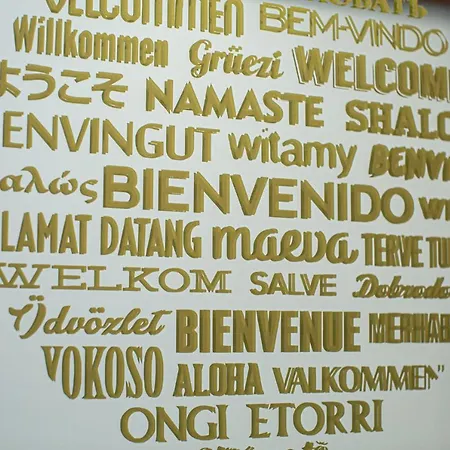 VELCOMMEN BEM-VINDO
Willkommen Grüezi WELCOME
ようこそ NAMASTE SHALO
ENVINGUT witamy BENVE
αλώς BIENVENIDO
LAMAT DATANG maeva TERVE TU
WELKOM SALVE Dobrodo
Üdvözlet BIENVENUE MERHAB
YOKOSO ALOHA VALKOMMEN
ONGI ETORRI